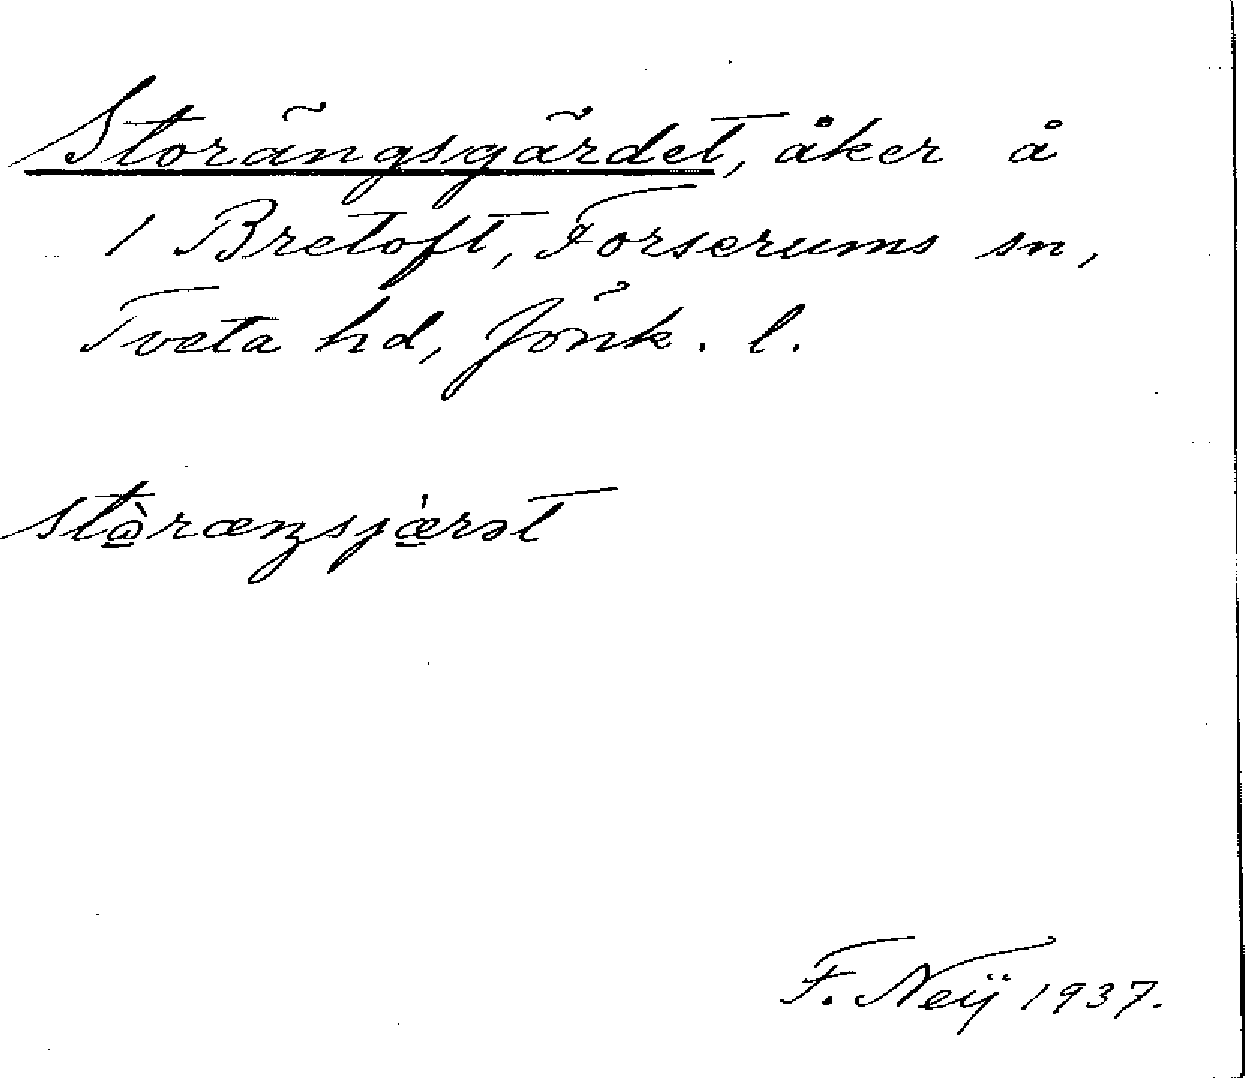 Storängsgärdet, åker å
1 Bretoft, Forserums sn,
Tveta hd, Jönk. l.
stòrænsjærət
F. Neij 1937.